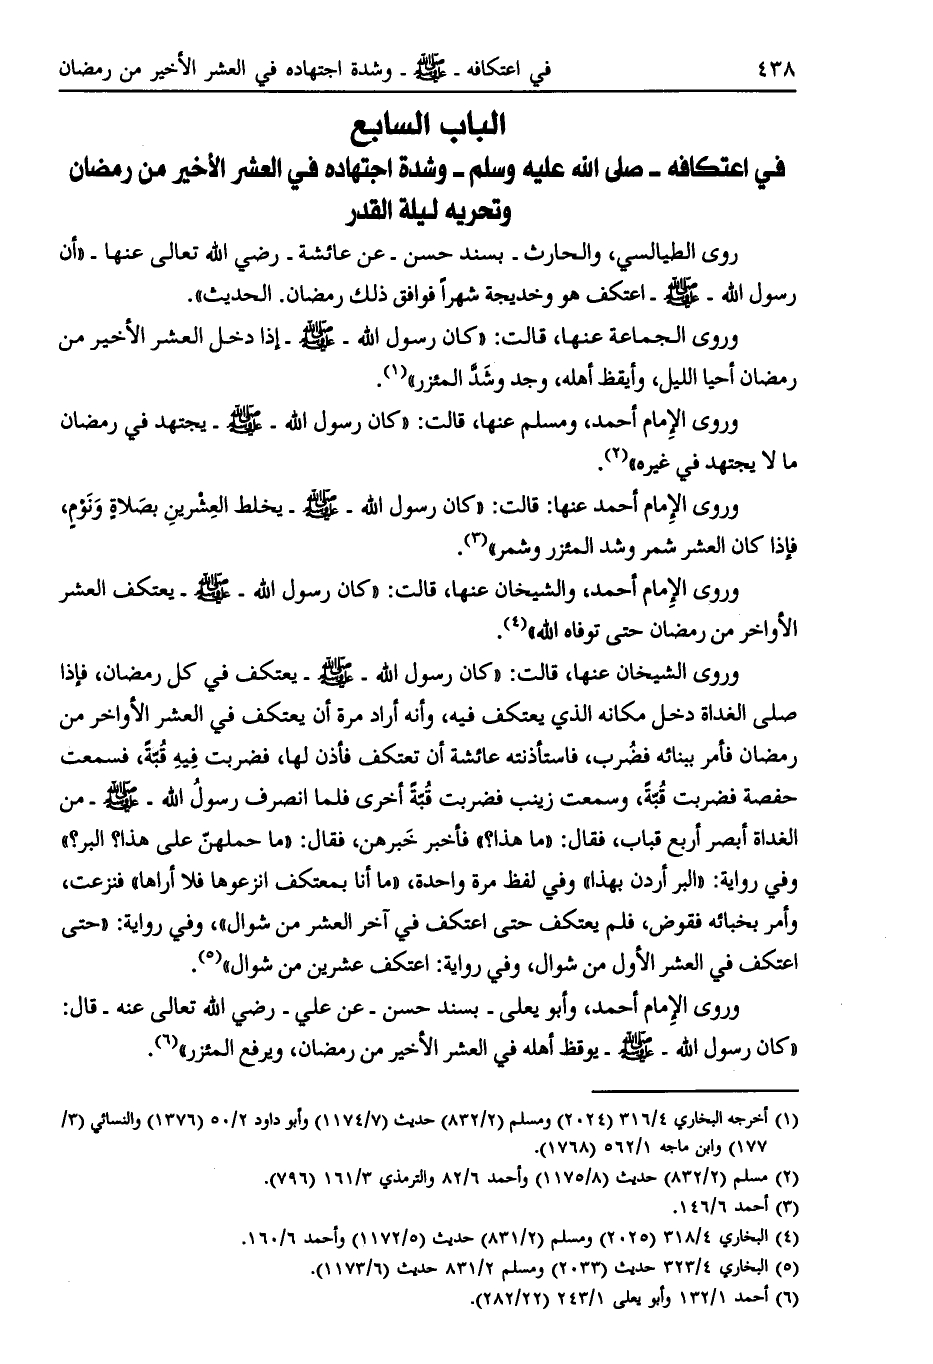 ٤٣٨ في اعتكافه ـ ﷺ ـ وشدة اجتهاده في العشر الأخير من رمضان
الباب السابع
في اعتكافه ـ صلى الله عليه وسلم ـ وشدة اجتهاده في العشر الأخير من رمضان
وتحريه ليلة القدر
روى الطيالسي، والحارث ـ بسند حسن ـ عن عائشة ـ رضي الله تعالى عنها ـ «أن
رسول الله ـ ﷺ ـ اعتكف هو وخديجة شهراً فوافق ذلك رمضان. الحديث».
وروى الجماعة عنها، قالت: «كان رسول الله ـ ﷺ ـ إذا دخل العشر الأخير من
رمضان أحيا الليل، وأيقظ أهله، وجد وشَدَّ المئزر»(١).
وروى الإمام أحمد، ومسلم عنها، قالت: «كان رسول الله ـ ﷺ ـ يجتهد في رمضان
ما لا يجتهد في غيره»(٢).
وروى الإمام أحمد عنها: قالت: «كان رسول الله ـ ﷺ ـ يخلط العِشْرينِ بصَلاةٍ وَنَوْمٍ،
فإذا كان العشر شمر وشد المئزر وشمر»(٣).
وروى الإمام أحمد، والشيخان عنها، قالت: «كان رسول الله ـ ﷺ ـ يعتكف العشر
الأواخر من رمضان حتى توفاه الله»(٤).
وروى الشيخان عنها، قالت: «كان رسول الله ـ ﷺ ـ يعتكف في كل رمضان، فإذا
صلى الغداة دخل مكانه الذي يعتكف فيه، وأنه أراد مرة أن يعتكف في العشر الأواخر من
رمضان فأمر ببنائه فضُرب، فاستأذنته عائشة أن تعتكف فأذن لها، فضربت فِيهِ قُبّةً، فسمعت
حفصة فضربت قُبّةً، وسمعت زينب فضربت قُبّةً أخرى فلما انصرف رسولُ الله ـ ﷺ ـ من
الغداة أبصر أربع قباب، فقال: «ما هذا؟» فأخبر خَبرهن، فقال: «ما حملهنّ على هذا؟ البر؟»
وفي رواية: «البر أردن بهذا» وفي لفظ مرة واحدة، «ما أنا بمعتكف انزعوها فلا أراها» فنزعت،
وأمر بخبائه فقوض، فلم يعتكف حتى اعتكف في آخر العشر من شوال»، وفي رواية: «حتى
اعتكف في العشر الأول من شوال، وفي رواية: اعتكف عشرين من شوال»(٥).
وروى الإمام أحمد، وأبو يعلى ـ بسند حسن ـ عن علي ـ رضي الله تعالى عنه ـ قال:
«كان رسول الله ـ ﷺ ـ يوقظ أهله في العشر الأخير من رمضان، ويرفع المئزر»(٦).
(١) أخرجه البخاري ٣١٦/٤ (٢٠٢٤) ومسلم (٨٣٢/٢) حديث (١١٧٤/٧) وأبو داود ٥٠/٢ (١٣٧٦) والنسائي (٣/
١٧٧) وابن ماجه ٥٦٢/١ (١٧٦٨).
(٢) مسلم (٨٣٢/٢) حديث (١١٧٥/٨) وأحمد ٨٢/٦ والترمذي ١٦١/٣ (٧٩٦).
(٣) أحمد ١٤٦/٦.
(٤) البخاري ٣١٨/٤ (٢٠٢٥) ومسلم (٨٣١/٢) حديث (١١٧٢/٥) وأحمد ١٦٠/٦.
(٥) البخاري ٣٢٣/٤ حديث (٢٠٣٣) ومسلم ٨٣١/٢ حديث (١١٧٣/٦).
(٦) أحمد ١٣٢/١ وأبو يعلى ٢٤٣/١ (٢٨٢/٢٢).